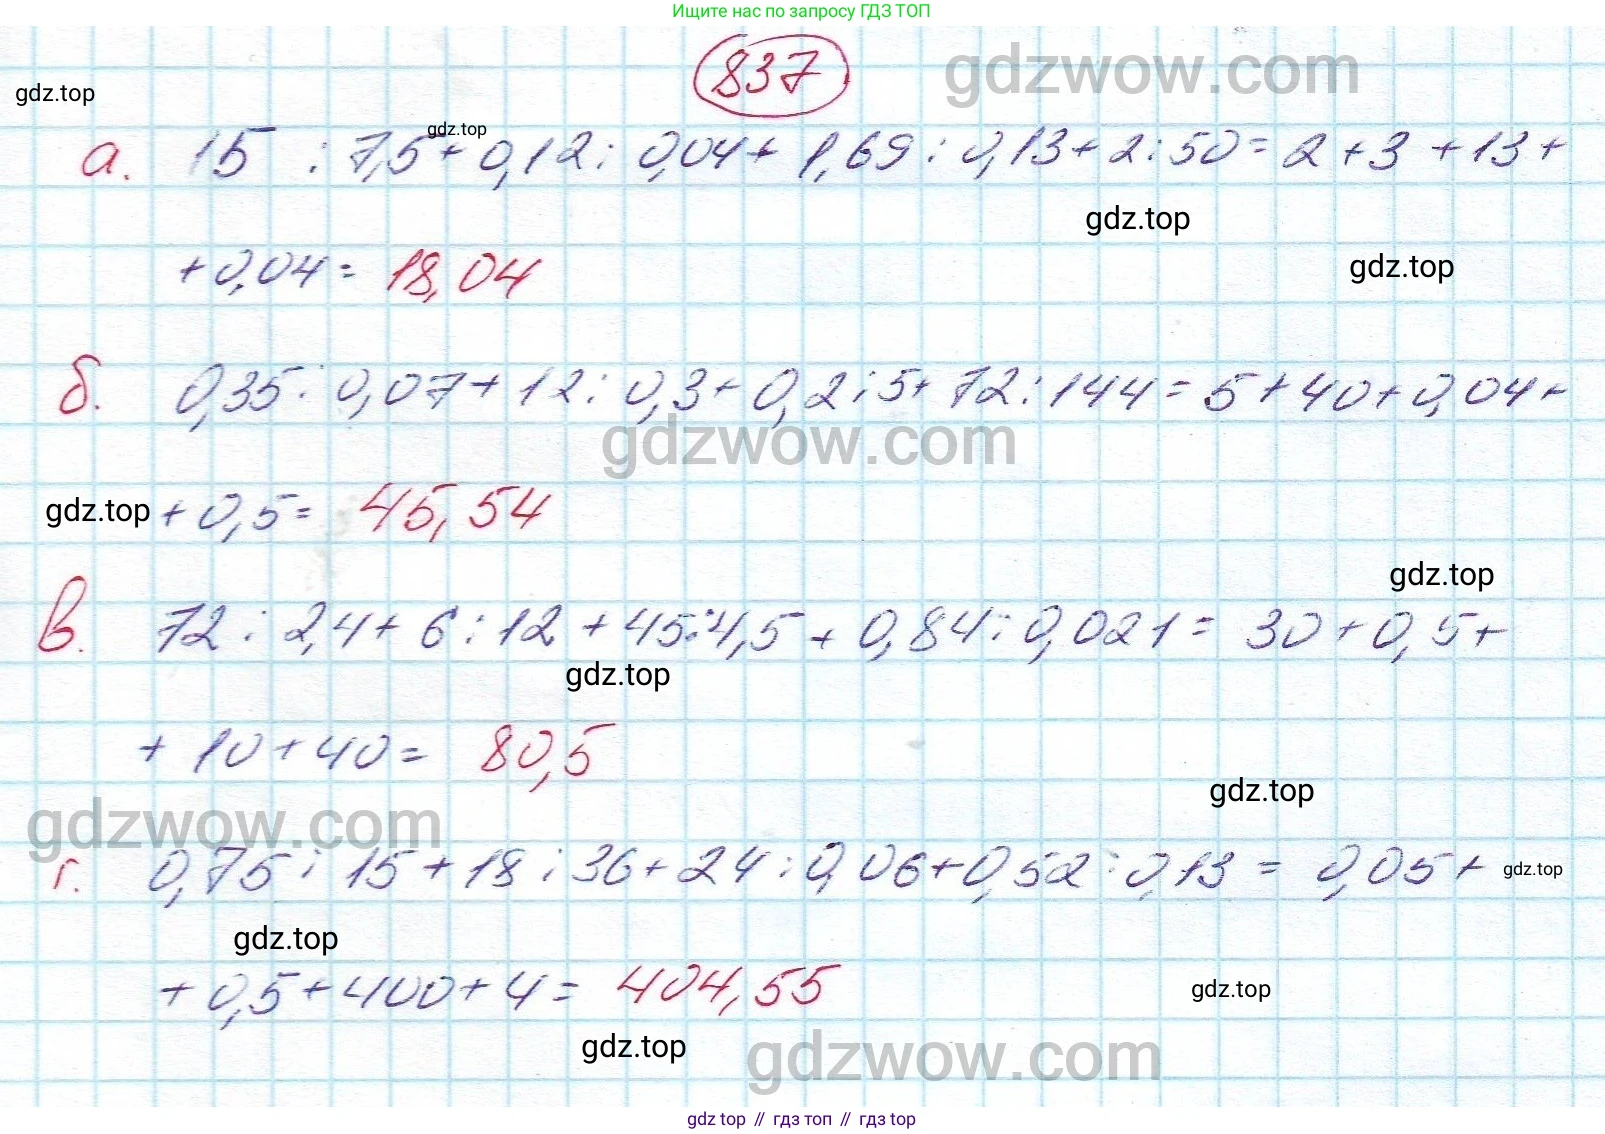 Ищите нас по запросу ГДЗ ТОП
837
gdzwow.com
gdz.top
gdz.top
а. 15 : 7,5 + 0,12 : 0,04 + 1,69 : 0,13 + 2 : 50 = 2 + 3 + 13 +
gdz.top
+ 0,04 = 18,04
gdz.top
б. 0,35 : 0,07 + 12 : 0,3 + 0,2 : 5 + 72 : 144 = 5 + 40 + 0,04 +
gdzwow.com
gdz.top
+ 0,5 = 45,54
gdz.top
в. 72 : 2,4 + 6 : 12 + 45 : 4,5 + 0,84 : 0,021 = 30 + 0,5 +
gdz.top
+ 10 + 40 = 80,5
gdz.top
gdzwow.com
г. 0,75 : 15 + 18 : 36 + 24 : 0,06 + 0,52 : 0,13 = 0,05 +
gdz.top
gdz.top
+ 0,5 + 400 + 4 = 404,55
gdz.top
gdz.top
gdzwow.com
gdz top // гдз топ // гдз top